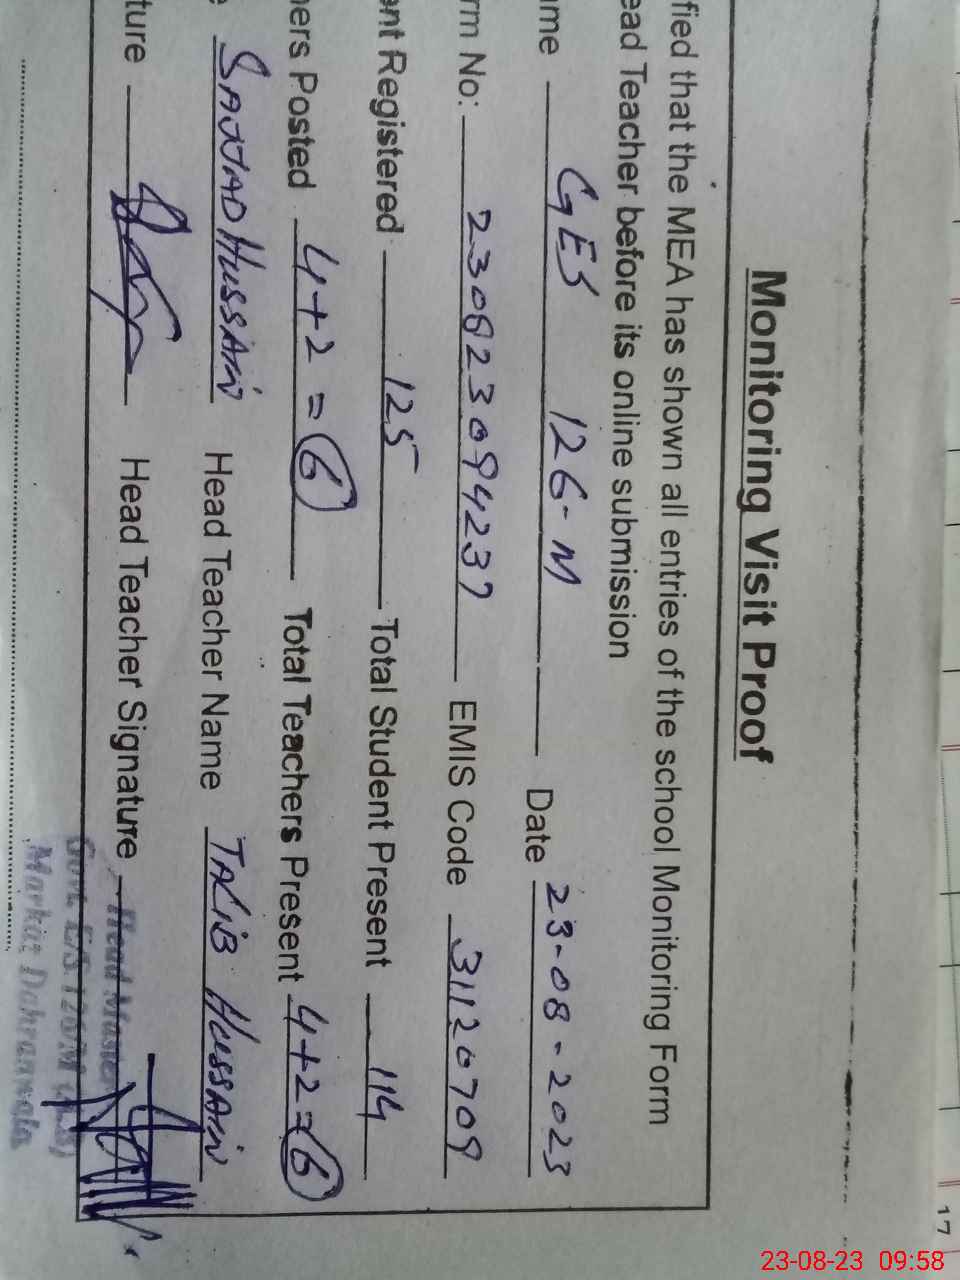 Monitoring Visit Proof
fied that the MEA has shown all entries of the school Monitoring Form
ead Teacher before its online submission
ame GES 126-M Date 23-08-2023
rm No: 230823094237 EMIS Code 31120709
ent Registered 125 Total Student Present 114
hers Posted 4+2=6 Total Teachers Present 4+2=6
e SAJJAD HUSSAIN Head Teacher Name TALIB HUSSAIN
ture Head Teacher Signature
Head Master
Govt. E/S. 126/M
Markaz Dahranwala
17
23-08-23 09:58